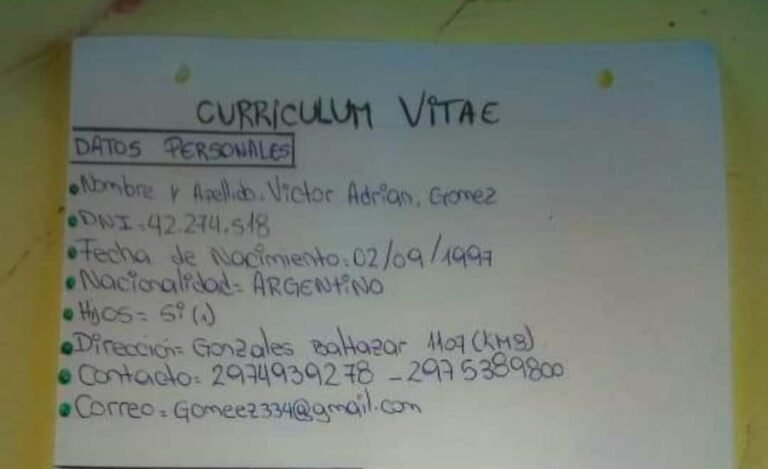 CURRICULUM VITAE
DATOS PERSONALES
• Nombre y Apellido. Victor Adrian, Gomez
• DNI = 42.274.518
• Fecha de Nacimiento: 02/09/1997
• Nacionalidad = ARGENTINO
• Hijos = Si (1)
• Dirección = Gonzales Baltazar 1107 (KM8)
• Contacto: 2974939278 - 2975389800
• Correo = Gomeez334@gmail.com